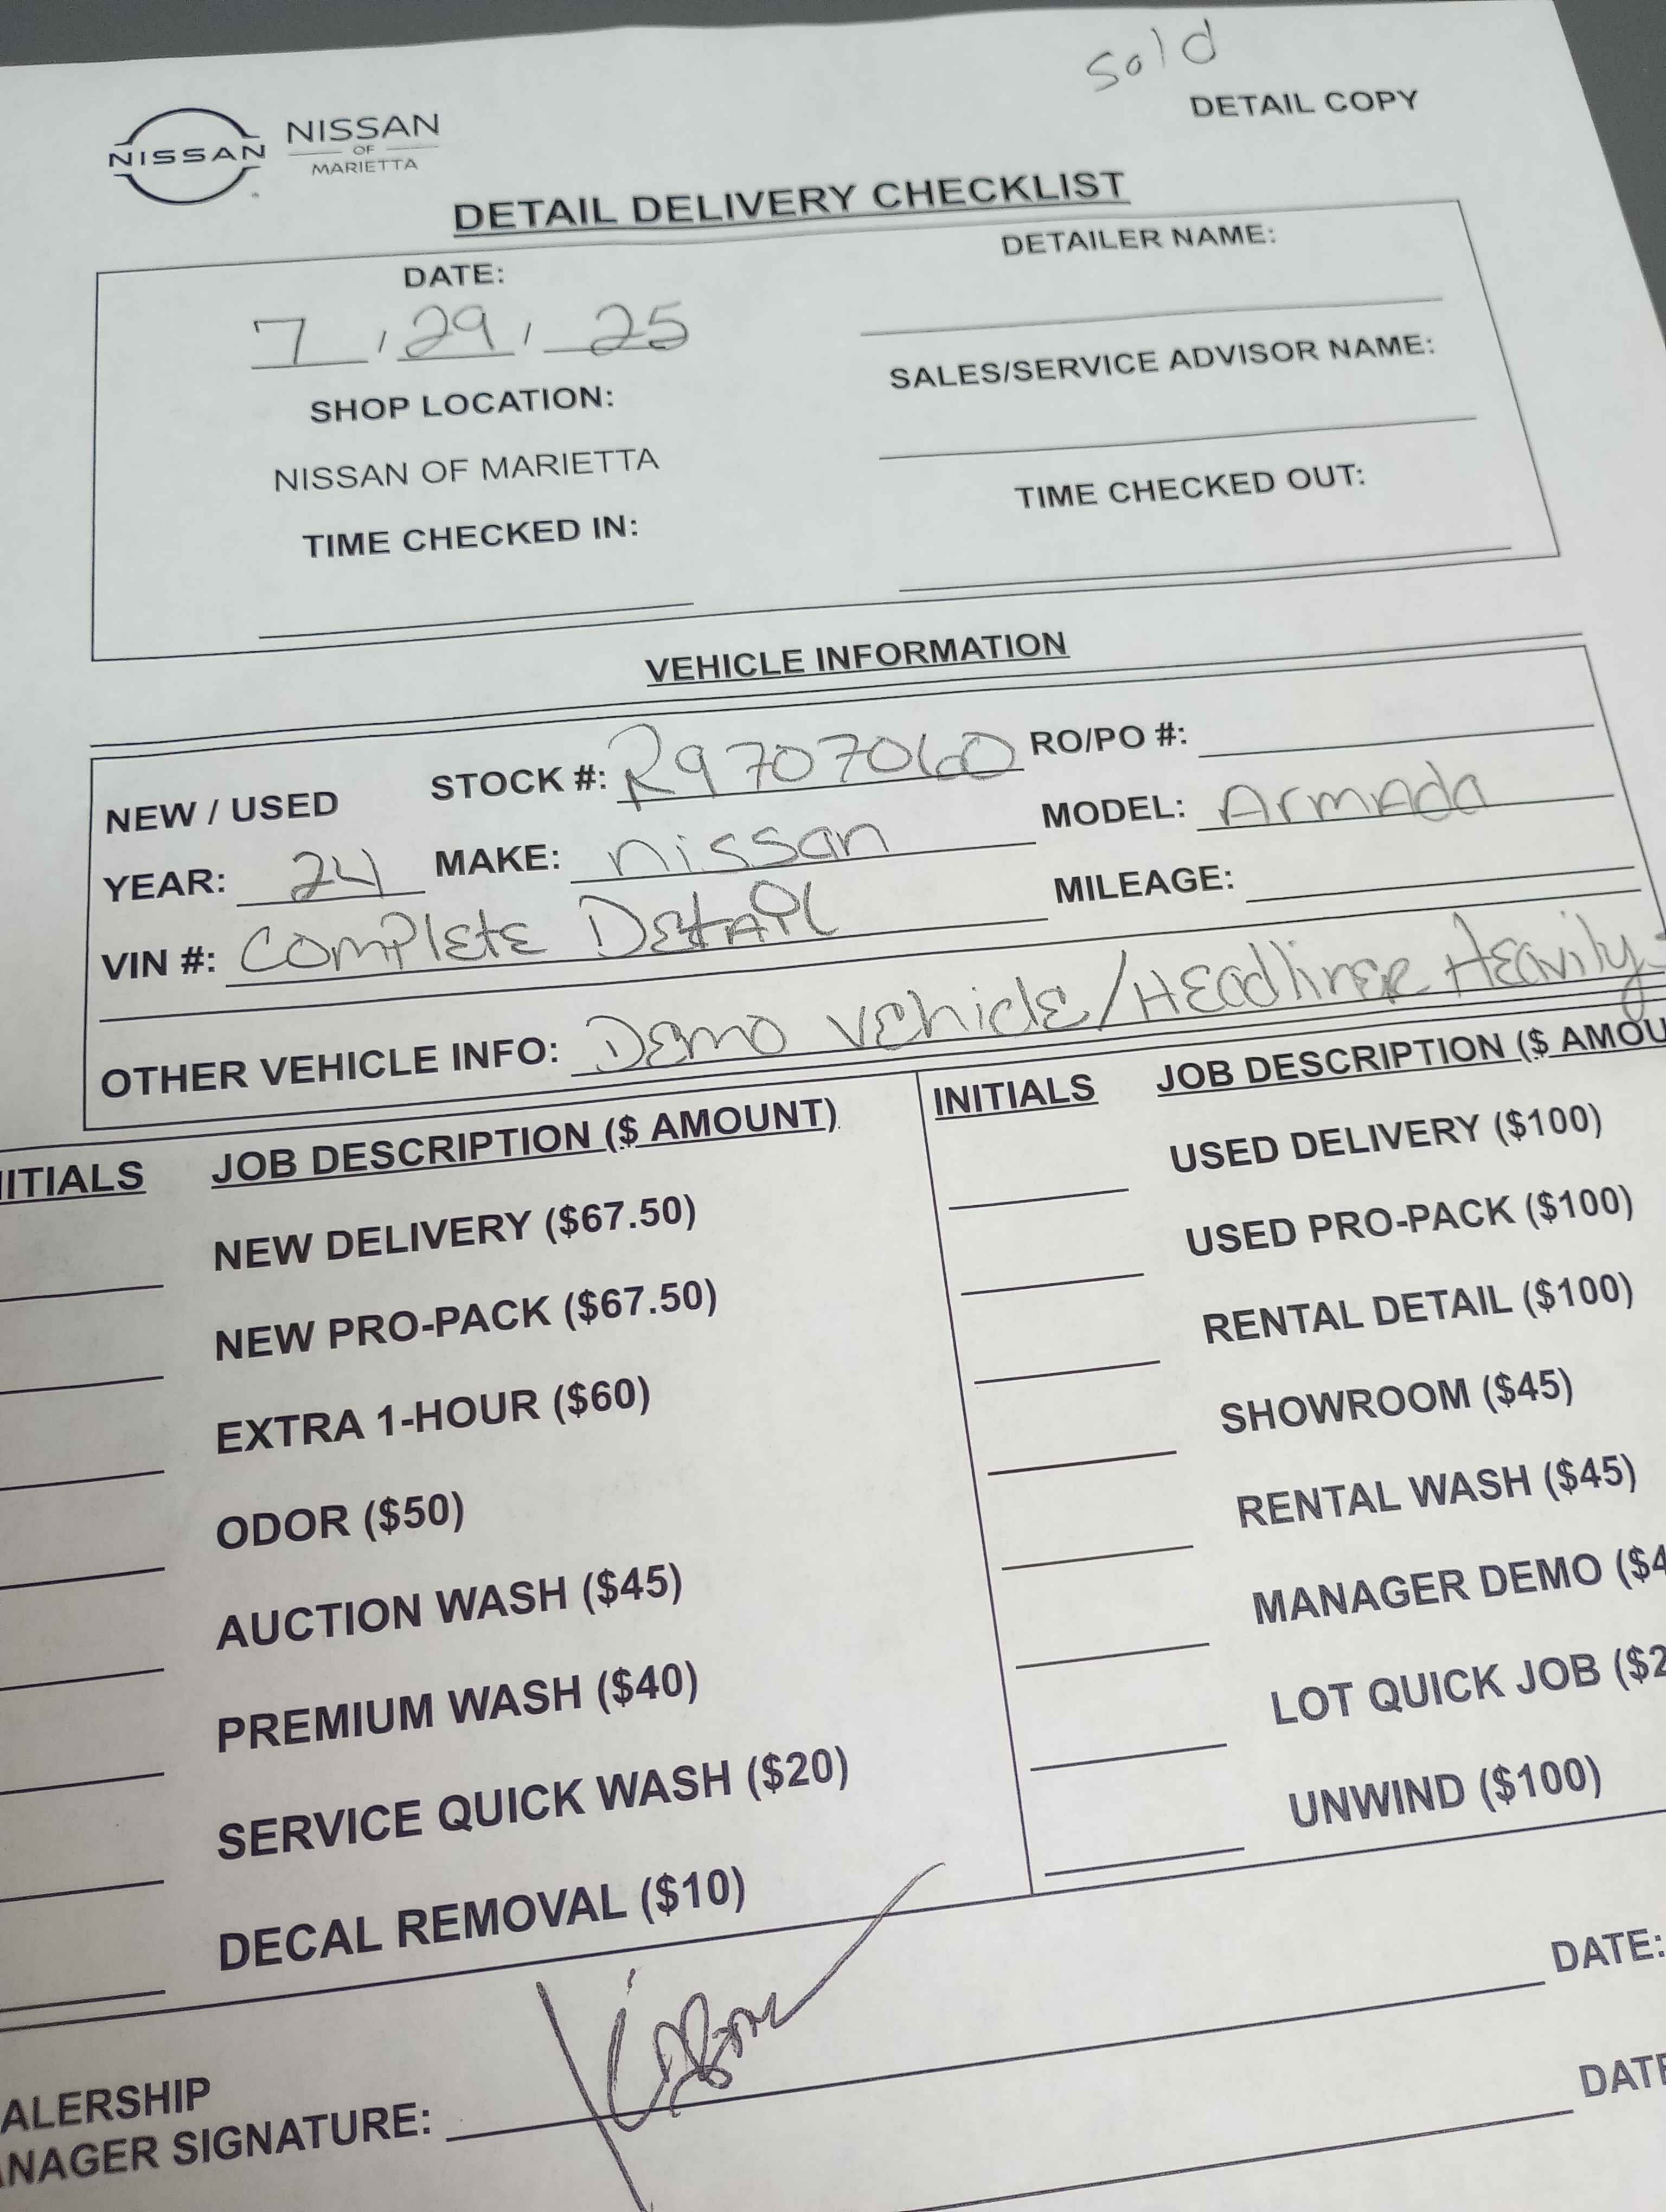 Sold
DETAIL COPY
NISSAN
NISSAN
OF
MARIETTA
DETAIL DELIVERY CHECKLIST
DATE:
7 / 29 / 25
SHOP LOCATION:
NISSAN OF MARIETTA
TIME CHECKED IN:
DETAILER NAME:
SALES/SERVICE ADVISOR NAME:
TIME CHECKED OUT:
VEHICLE INFORMATION
NEW / USED STOCK #: R9707060 RO/PO #:
YEAR: 24 MAKE: nissan MODEL: Armada
VIN #: Complete Detail MILEAGE:
OTHER VEHICLE INFO: Demo vehicle/Headliner Heavily
ITIALS JOB DESCRIPTION ($ AMOUNT)
NEW DELIVERY ($67.50)
NEW PRO-PACK ($67.50)
EXTRA 1-HOUR ($60)
ODOR ($50)
AUCTION WASH ($45)
PREMIUM WASH ($40)
SERVICE QUICK WASH ($20)
DECAL REMOVAL ($10)
INITIALS JOB DESCRIPTION ($ AMOU
USED DELIVERY ($100)
USED PRO-PACK ($100)
RENTAL DETAIL ($100)
SHOWROOM ($45)
RENTAL WASH ($45)
MANAGER DEMO ($4
LOT QUICK JOB ($2
UNWIND ($100)
ALERSHIP
NAGER SIGNATURE:
DATE:
DATE